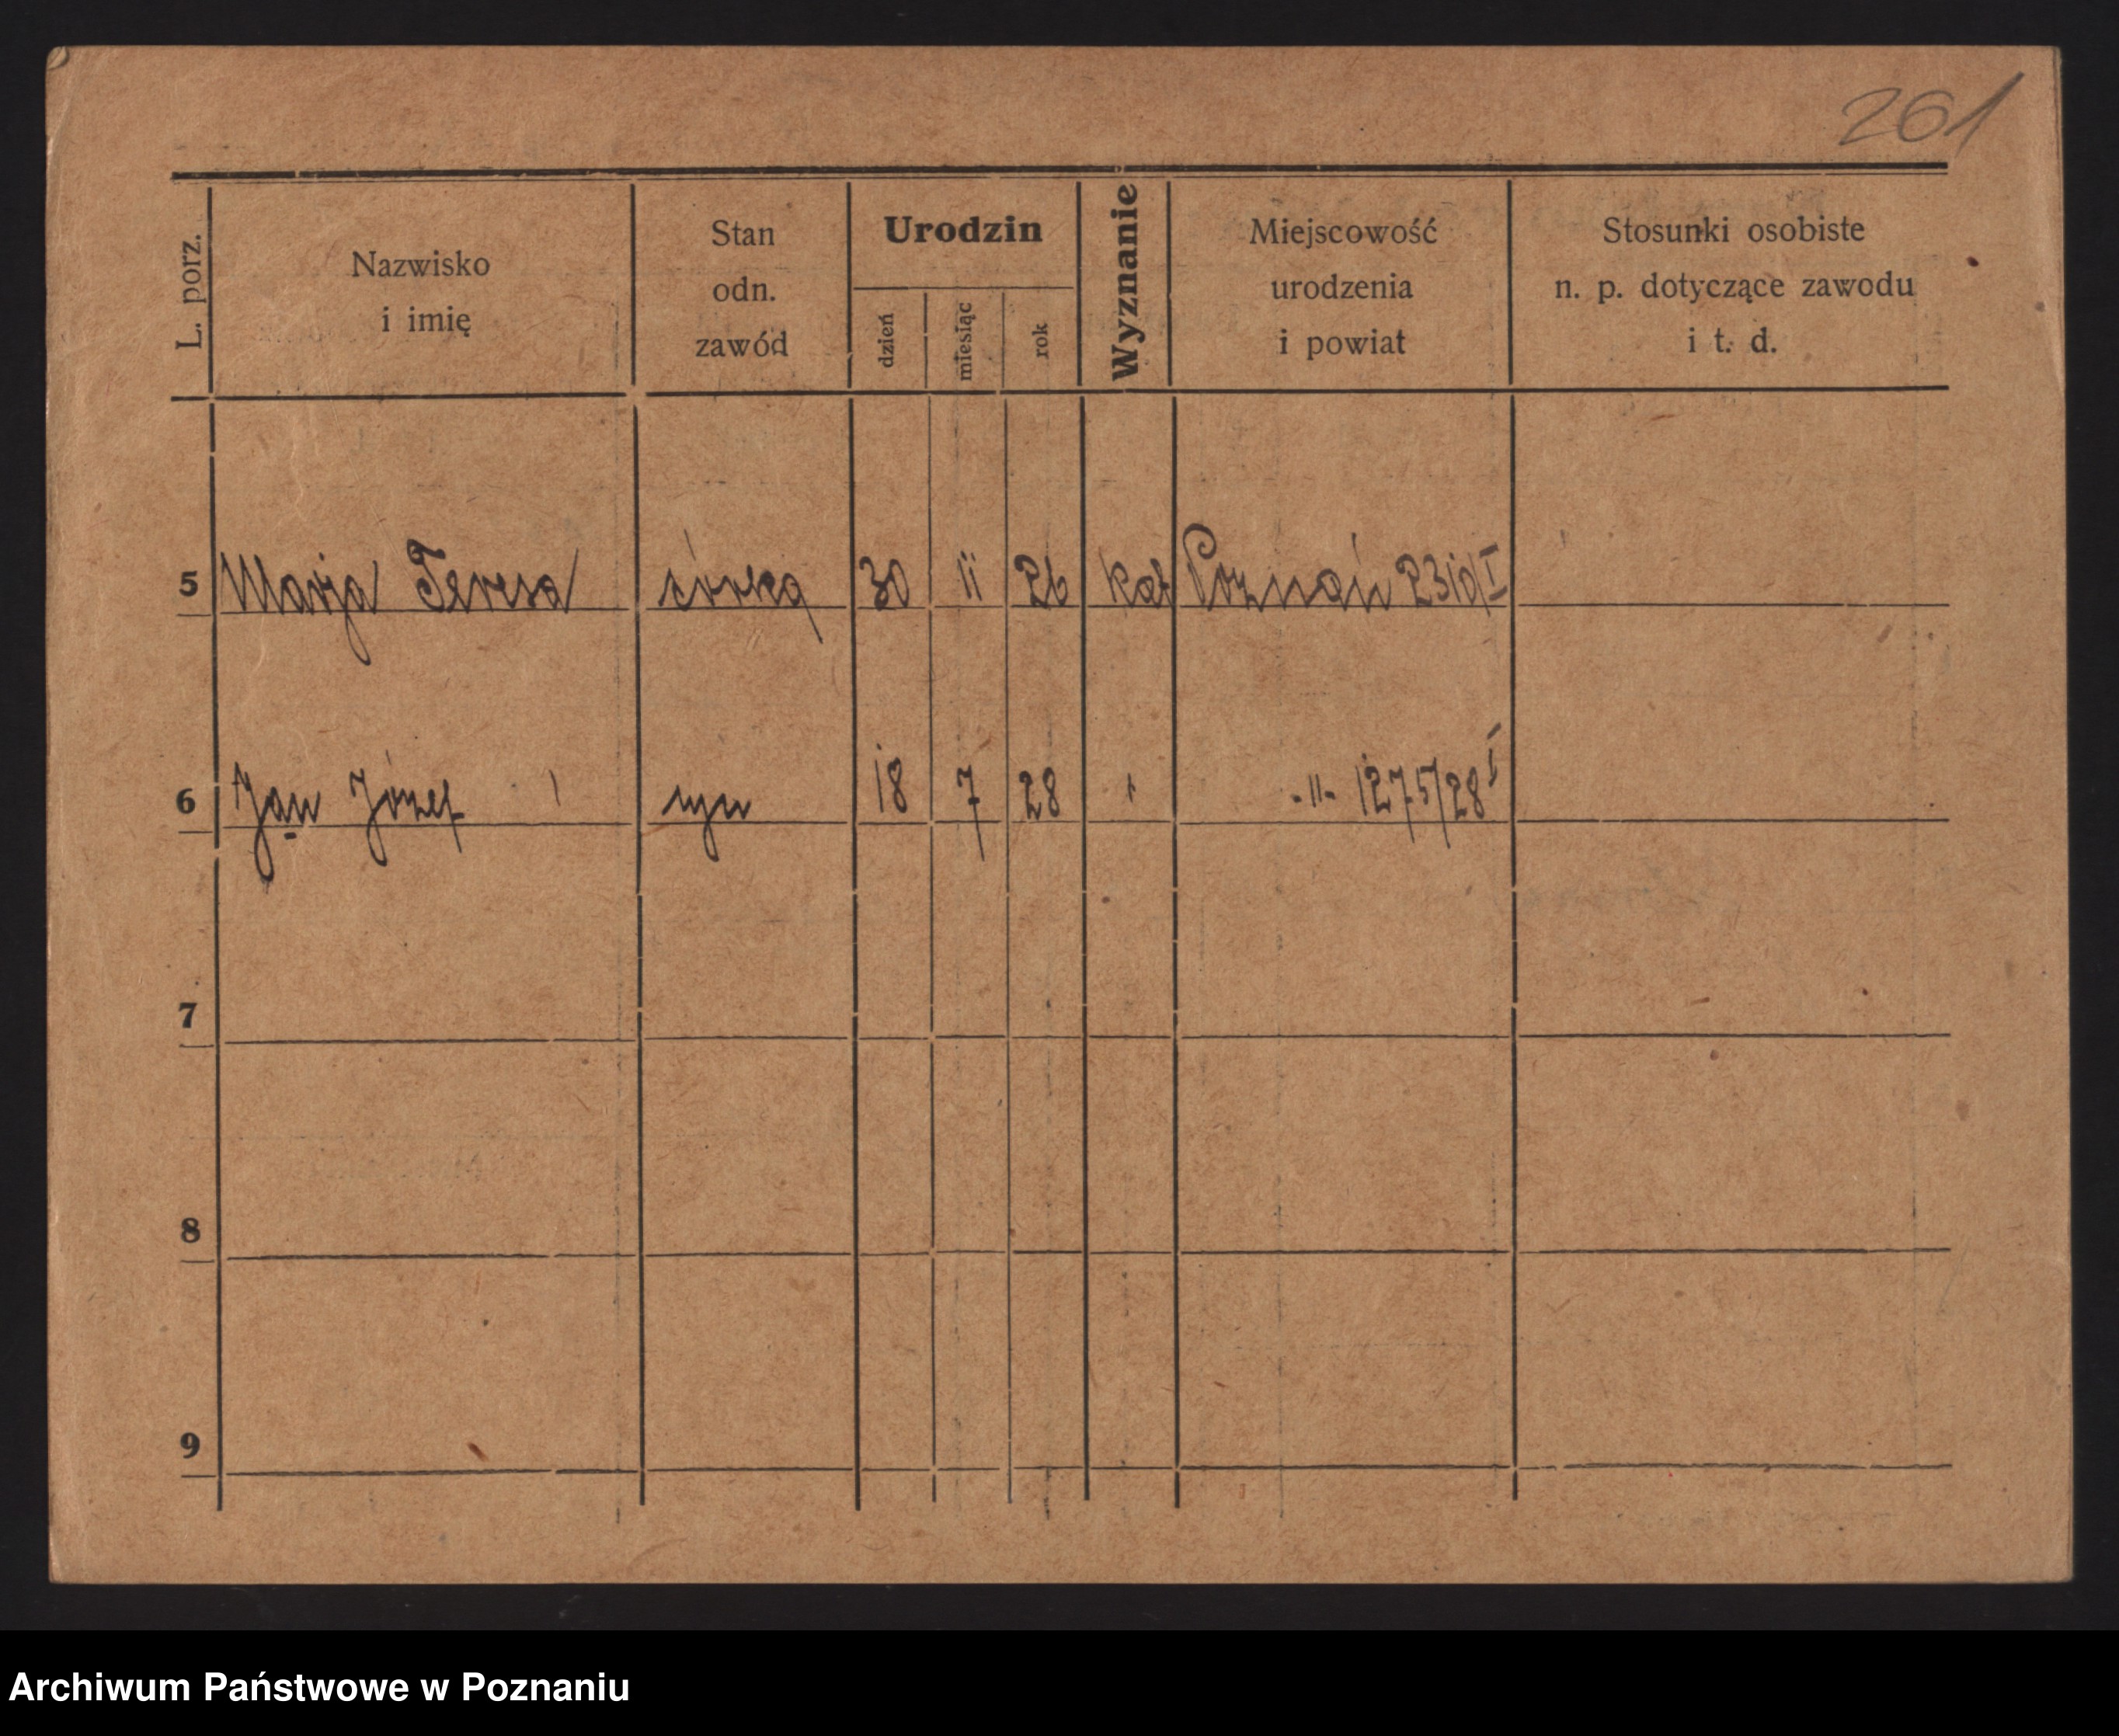 261
L. porz.
Nazwisko
i imię
Stan
odn.
zawód
Urodzin
dzień
miesiąc
rok
Wyznanie
Miejscowość
urodzenia
i powiat
Stosunki osobiste
n. p. dotyczące zawodu
i t. d.
5 Marja Teresa córka 30 11 26 kat Poznań 2310/I
6 Jan Józef syn 18 7 28 -11- 1275/28 I
7
8
9
Archiwum Państwowe w Poznaniu